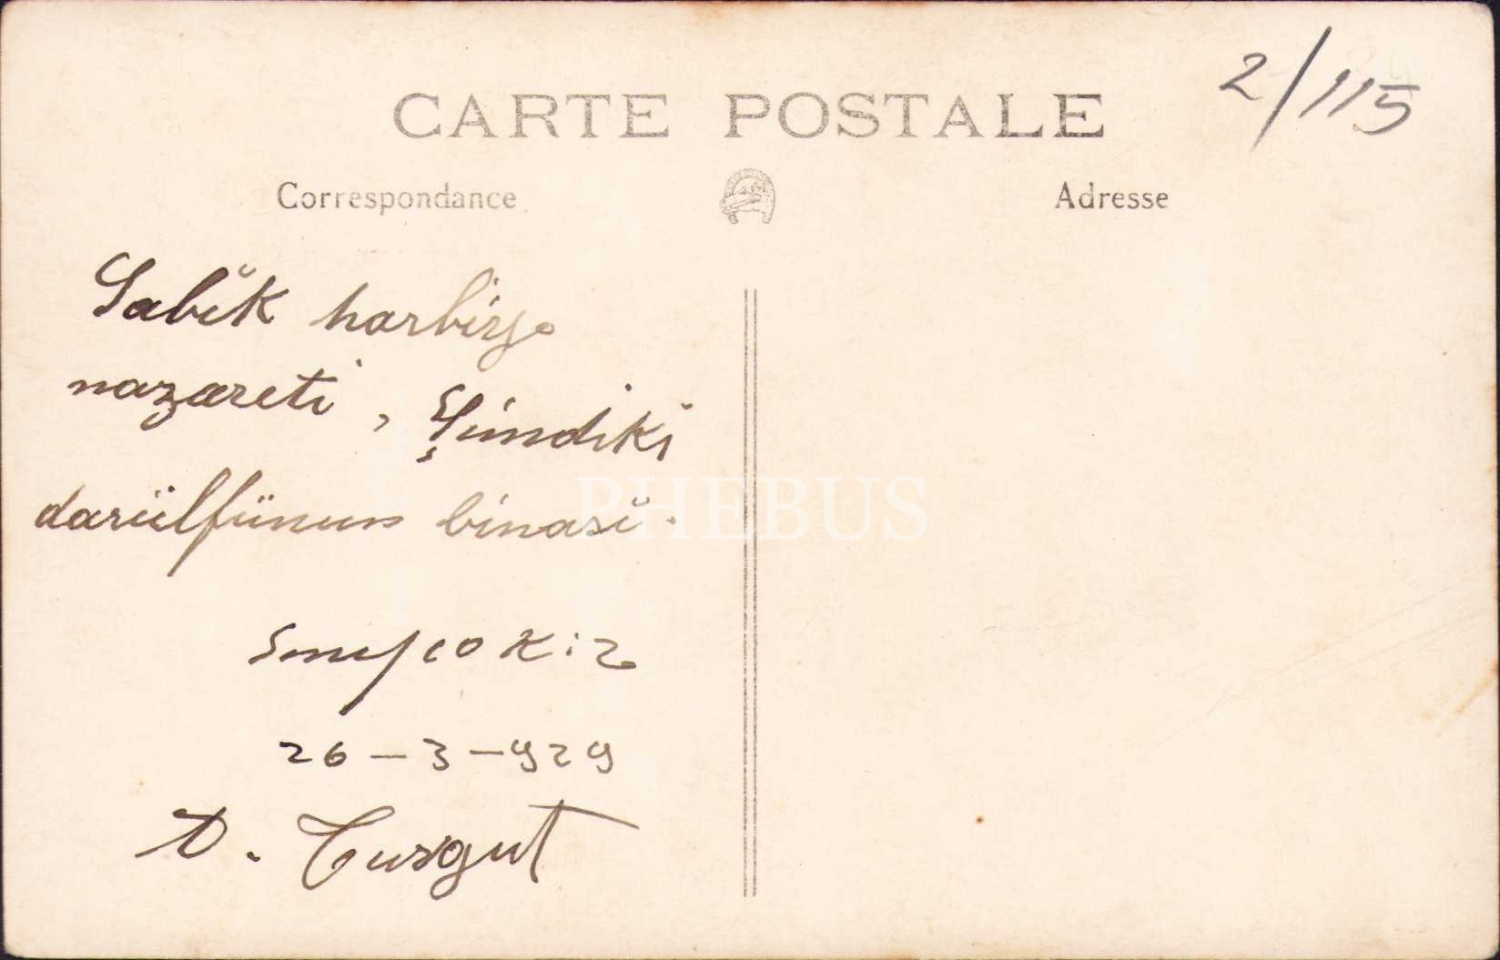 CARTE POSTALE
2/115
Correspondance
Adresse
Sabık harbiye
nazareti, Şimdiki
darülfünun binası.
26-3-929
D. Turgut
PHEBUS